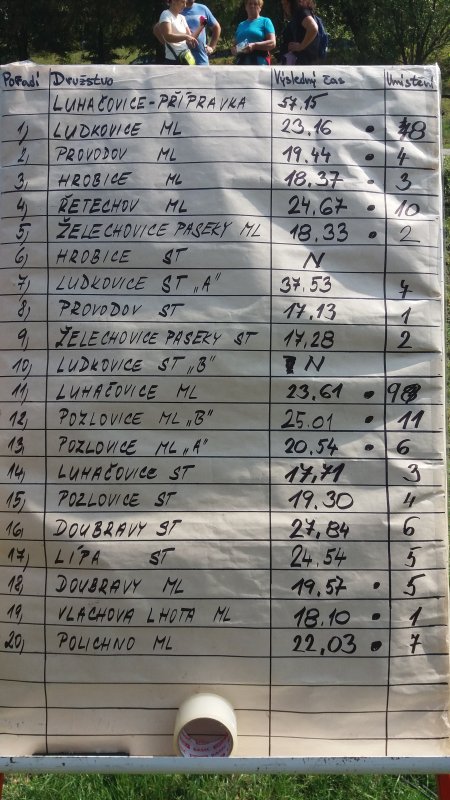 Pořadí Družstvo Výsledný čas Umístění
LUHAČOVICE-PŘÍPRAVKA 57.15
1, LUDKOVICE ML 23.16 • 8
2, PROVODOV ML 19.44 • 4
3, HROBICE ML 18.37 • 3
4, ŘETECHOV ML 24.67 • 10
5, ŽELECHOVICE PASEKY ML 18.33 • 2
6, HROBICE ST N
7, LUDKOVICE ST „A" 37.53
8, PROVODOV ST 17.13 1
9, ŽELECHOVICE PASEKY ST 17,28 2
10, LUDKOVICE ST „B" N
11, LUHAČOVICE ML 23.61 • 9
12, POZLOVICE ML „B" 25.01 • 11
13, POZLOVICE ML „A" 20,54 • 6
14, LUHAČOVICE ST 17,71 3
15, POZLOVICE ST 19.30 4
16, DOUBRAVY ST 27,84 6
17, LÍPA ST 24.54 5
18, DOUBRAVY ML 19,57 • 5
19, VLACHOVA LHOTA ML 18.10 • 1
20, POLICHNO ML 22,03 • 7